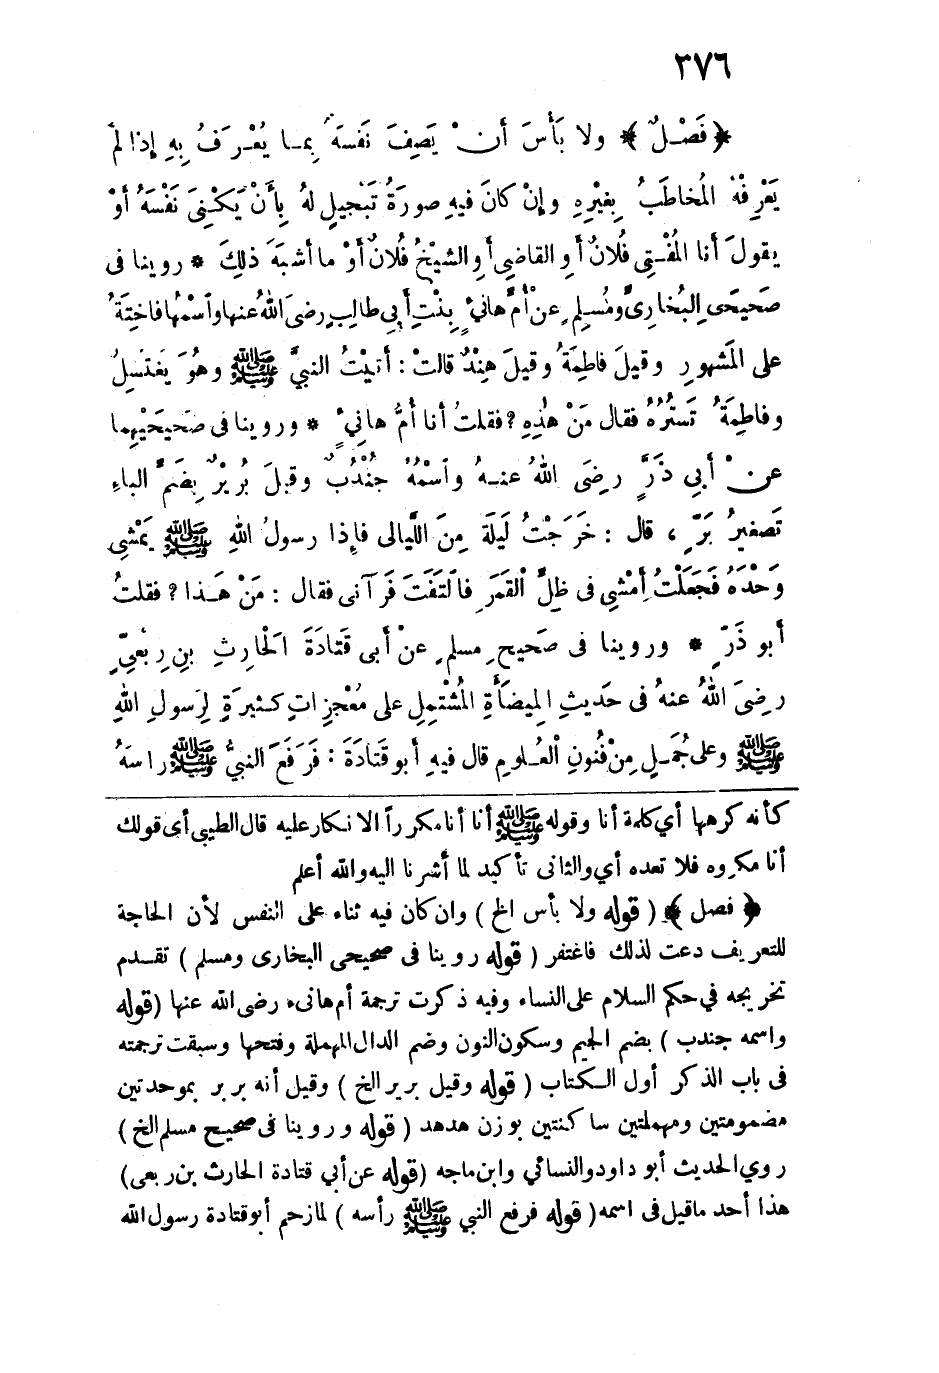 ٣٧٦
﴿ فَصْلٌ ﴾ ولا بَأْسَ أنْ يَصِفَ نَفسَهُ بِمـا يُعْرَفُ بِهِ إذا لم
يَعْرِفْهُ المُخاطَبُ بِغيْرِهِ وإنْ كانَ فيهِ صورَةُ تَبْجيلٍ لهُ بِأَنْ يَكْنِىَ نَفْسَهُ أوْ
يقولَ أنا المُفْتِى فُلانٌ أوِ القاضِى أوِ الشيْخُ فُلانٌ أوْ ما أشبَهَ ذلِكَ * روينا فى
صَحيحَىِ البُخارىِّ ومُسلِمٍ عنْ أُمِّ هانِئٍ بِنْتِ أبِي طالِبٍ رضىَ اللهُ عنها وٱسْمُها فاخِتَةُ
على المَشهورِ وقيلَ فاطِمَةُ وقيلَ هِنْدٌ قالتْ : أتيْتُ النبيَّ ﷺ وهُوَ يَغتَسِلُ
وفاطِمَةُ تَستُرُهُ فقال مَنْ هٰذِهِ ? فقلتُ أنا أُمُّ هانِئٍ * وروينا فى صَحيحَيْهِما
عنْ أبِى ذَرٍّ رضِىَ اللهُ عنـهُ وٱسْمُهُ جُنْدُبٌ وقيلَ بُرَيْرٌ بِضَمِّ الباءِ
تَصغيرُ بَرٍّ ، قال : خَرَجْتُ لَيلَةً مِنَ اللَّيالى فإِذا رسولُ اللهِ ﷺ يَمْشِى
وَحْدَهُ فَجَعَلْتُ أمْشِى فى ظِلِّ القَمَرِ فالتَفَتَ فَرَآنى فقال : مَنْ هَـذا ? فقلتُ
أبو ذَرٍّ * وروينا فى صَحيحِ مسلمٍ عنْ أبى قَتادَةَ الحَارِثِ بنِ رِبْعِىٍّ
رضِىَ اللهُ عنهُ فى حَديثِ المِيضأَةِ المُشْتمِلِ على مُعْجِزاتٍ كـثيرَةٍ لِرَسولِ اللهِ
ﷺ وعلى جُمَـلٍ مِنْ فُنونِ العُـلومِ قال فيهِ أبو قَتادَةَ : فَرَفَعَ النبيُّ ﷺ راسَهُ
كأنه كرهها أي كلمة أنا وقوله ﷺ أنا أنا مكرراً الانكار عليه قال الطيبى أى قولك
أنا مكروه فلا تعده أي والثانى تأكيد لما أشرنا اليه والله أعلم
﴿ فصل ﴾ ( قوله ولا بأس الخ ) وان كان فيه ثناء على النفس لأن الحاجة
للتعريف دعت لذلك فاغتفر ( قوله روينا فى صحيحى البخارى ومسلم ) تقـدم
تخريجه في حكم السلام على النساء وفيه ذكرت ترجمة أم هانىء رضى الله عنها ( قوله
واسمه جندب ) بضم الجيم وسكون النون وضم الدال المهملة وفتحها وسبقت ترجمته
فى باب الذكر أول الـكتاب ( قوله وقيل برير الخ ) وقيل أنه بربر بموحدتين
مضمومتين ومهملتين ساكنتين بوزن هدهد ( قوله وروينا فى صحيح مسلم الخ )
روي الحديث أبو داود والنسائي وابن ماجه ( قوله عن أبي قتادة الحارث بن ربعى )
هذا أحد ماقيل فى اسمه ( قوله فرفع النبي ﷺ رأسه ) لمازحم أبوقتادة رسول الله